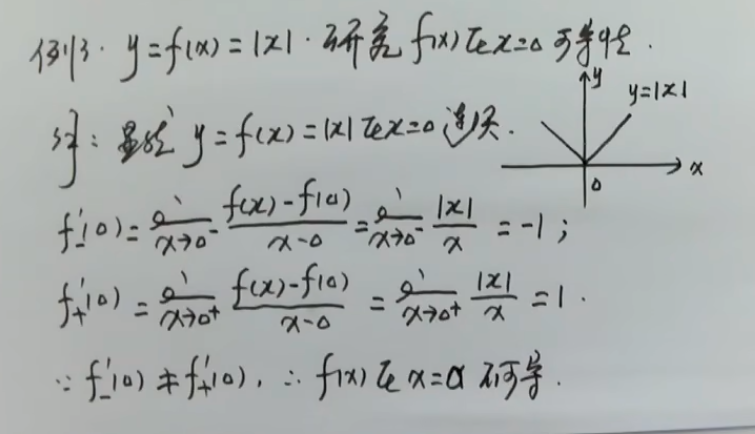 例3. y=f(x)=|x|. 研究 f(x)在x=0可导性.
解: 显然 y=f(x)=|x|在x=0连续.
y
y=|x|
x
0
f'₋(0)=lim_{x→0⁻} (f(x)-f(0))/(x-0) = lim_{x→0⁻} |x|/x = -1;
f'₊(0)=lim_{x→0⁺} (f(x)-f(0))/(x-0) = lim_{x→0⁺} |x|/x = 1.
∵ f'₋(0)≠f'₊(0), ∴ f(x)在x=0不可导.